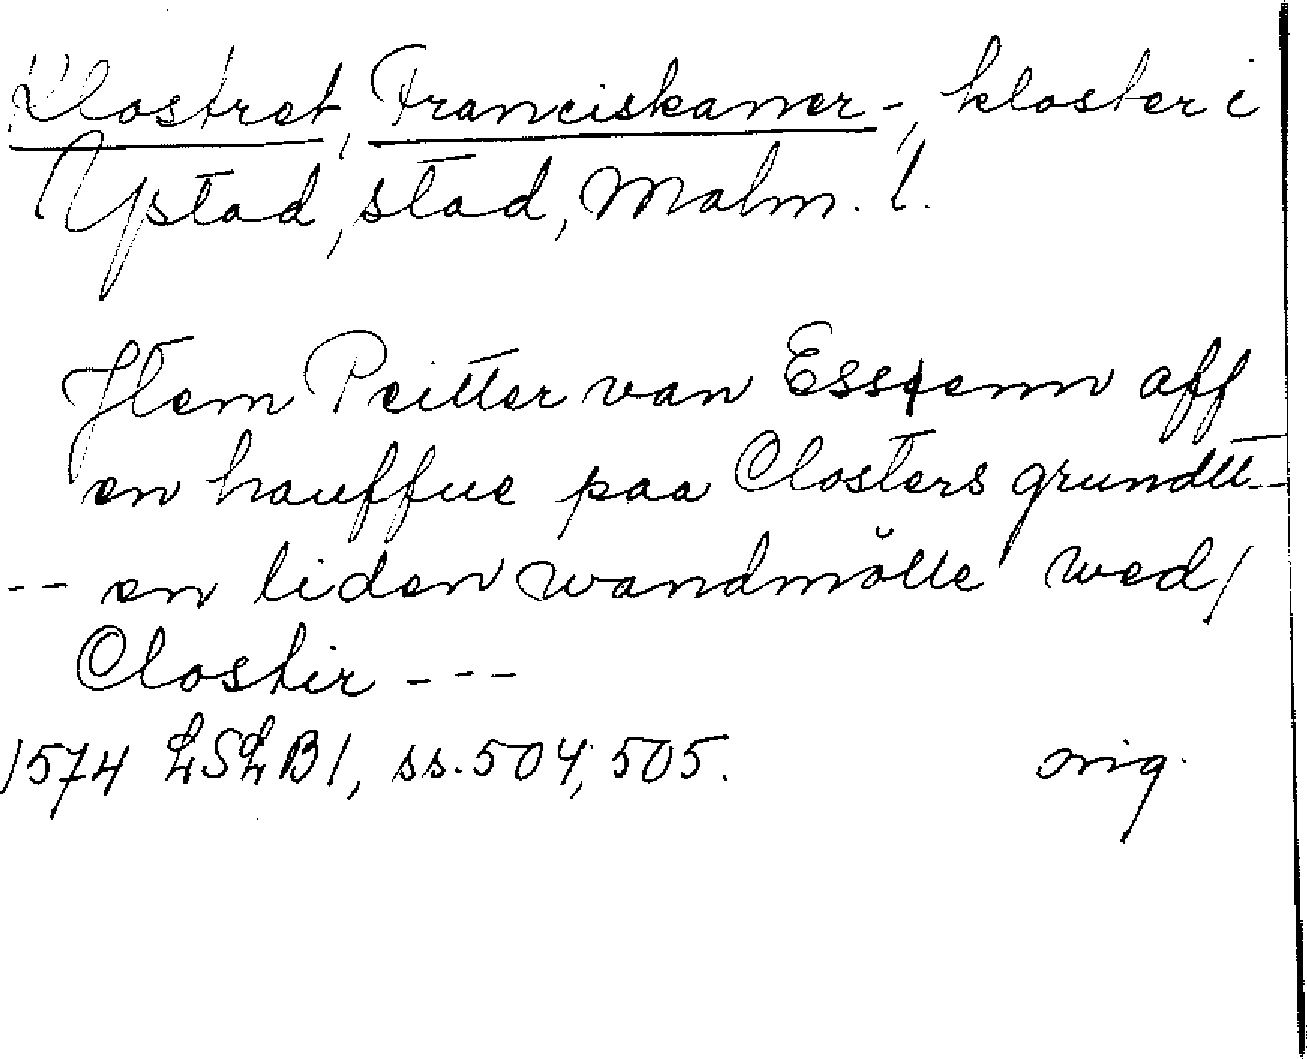 Klostret, Franciskaner-, kloster i
Ystad, stad, Malm. l.
Item Peitter van Essenn aff
en hauffue paa Closters grundtt--
-- en liden wandmölle wed/
Closter ---
1574 LSLB1, ss. 504, 505. orig.